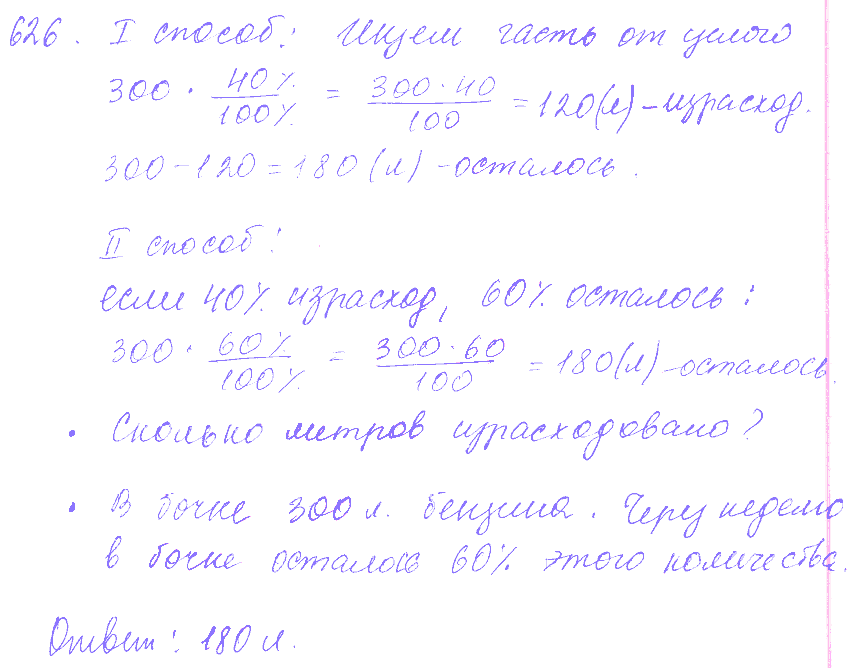 626. I способ: Ищем часть от целого
300 · 40% / 100% = 300 · 40 / 100 = 120 (л) – израсход.
300 – 120 = 180 (л) – осталось.
II способ:
если 40% израсход, 60% осталось:
300 · 60% / 100% = 300 · 60 / 100 = 180 (л) – осталось.
• Сколько литров израсходовано?
• В бочке 300 л. бензина. Через неделю
в бочке осталось 60% этого количества.
Ответ: 180 л.